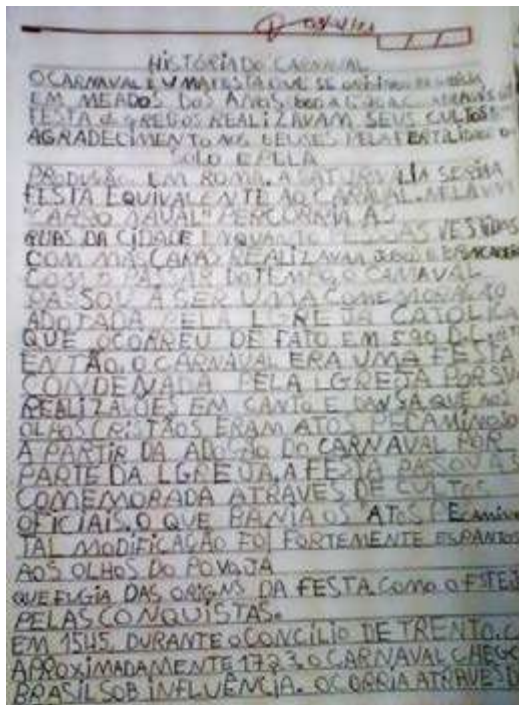 HISTÓRIA DO CARNAVAL
O CARNAVAL E UMA FESTA QUE SE ORIGINOU
EM MEADOS DOS ANOS, 600 A
FESTA GREGOS REALIZAVAM SEUS CULTOS
AGRADECIMENTO AOS DEUSES PELA FERTILIDADE
SOLO E PELA
PRODUSÃO. EM ROMA. A SATURNALIA SERIA
FESTA EQUIVALENTE AO CARNAVAL. NELA
"CARRO NAVAL" PERCORRIA AS
RUAS DA CIDADE ENQUANTO PESSOAS VESTIDAS
COM MASCARAS REALIZAVAM JOGOS E
COM O PASSAR DO TEMPO, O CAMAVAL
PASSOU A SER UMA COMEMORAÇÃO
ADOTADA PELA IGREJA CATOLICA
QUE OCORREU DE FATO EM 590 D.C.
ENTÃO, O CARNAVAL ERA UMA FESTA
CONDENADA PELA IGREJA POR SU
REALIZAÇOES EM CANTO E DANSA QUE AOS
OLHOS CRISTÃOS ERAM ATOS PECAMINOSO
A PARTIR DA ADOÇÃO DO CARNAVAL POR
PARTE DA IGREJA, A FESTA PASSOU A S
COMEMORADA ATRAVES DE CULTOS
OFICIAIS. O QUE BANIA OS "ATOS PECAMIN
TAL MODIFICAÇÃO FOI FORTEMENTE ESPANTOS
AOS OLHOS DO POVO JÁ
QUE FUGIA DAS ORIGENS DA FESTA. COMO O FSTEJ
PELAS CONQUISTAS.
EM 1545, DURANTE O CONCÍLIO DE TRENTO, C
APROXIMADAMENTE 1723, O CARNAVAL CHEGO
BRASIL SOB INFLUÊNCIA. OCORRIA ATRAVES D